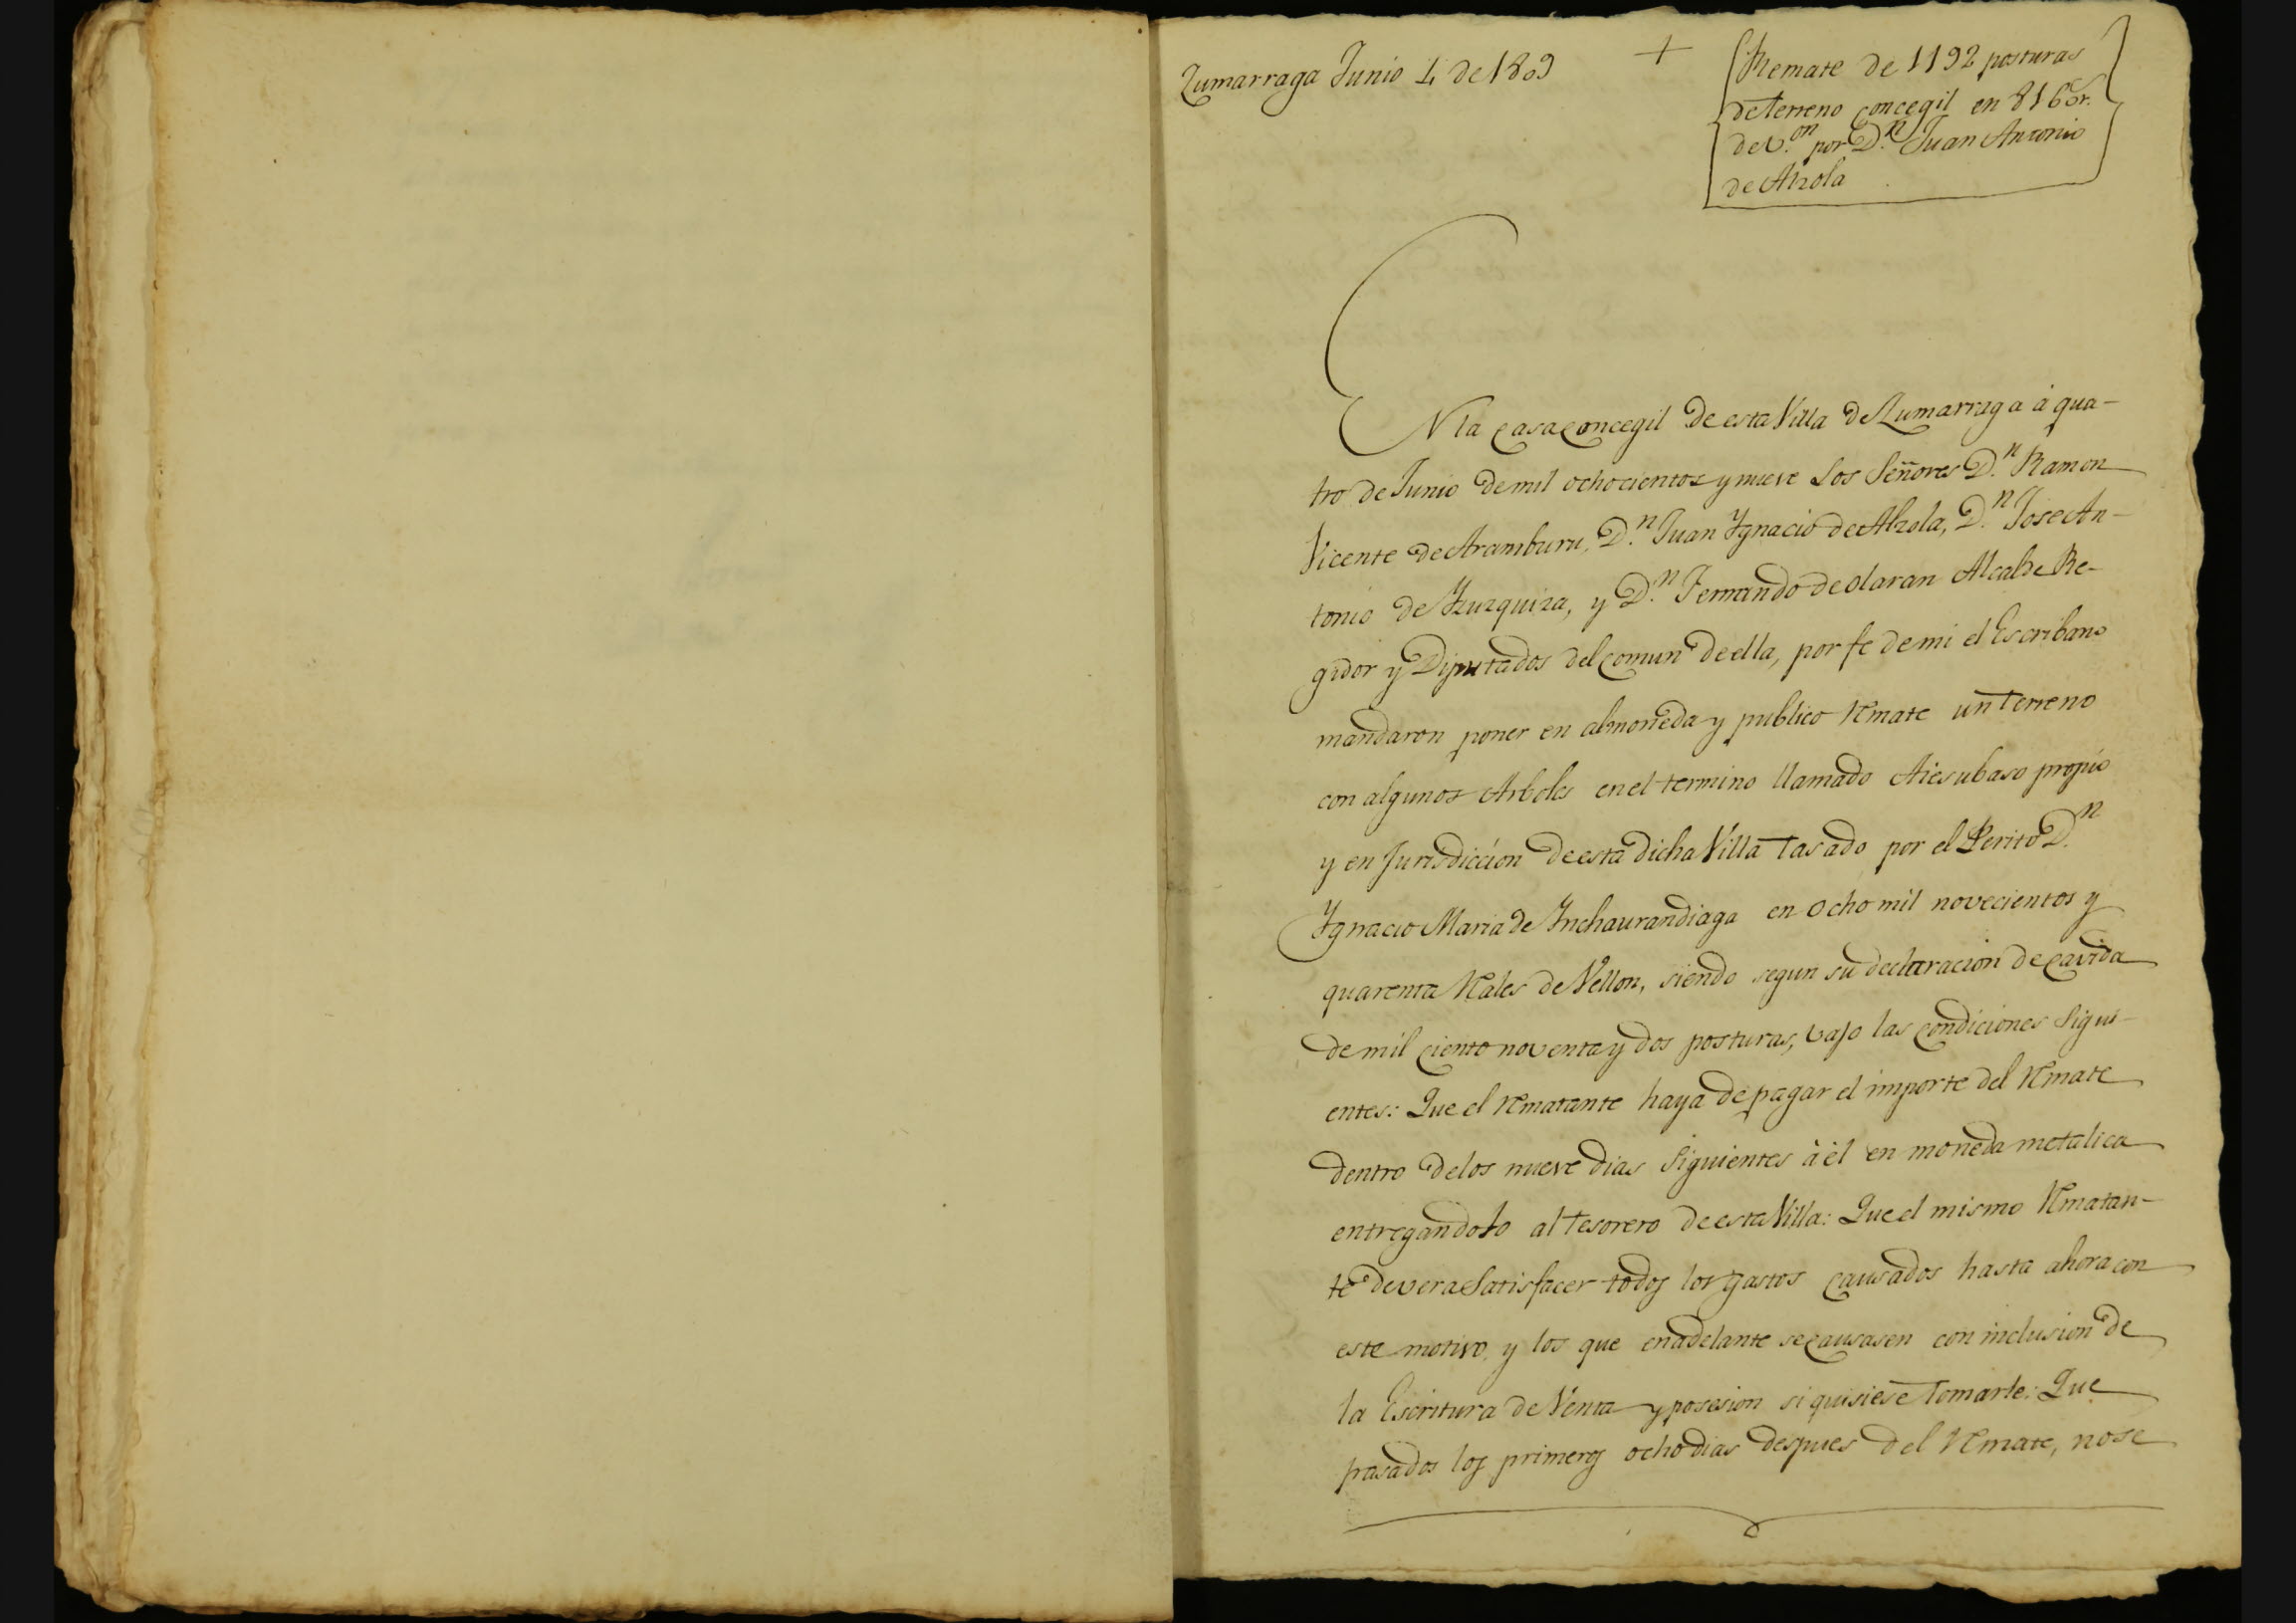 Zumarraga Junio 4 de 1809
+
Remate de 1192 posturas
de terreno concegil en 8160 r.
de v.on por D.n Juan Antonio
de Alzola
EN la casa concegil de esta Villa de Zumarraga à qua-
tro de Junio de mil ochocientos y nueve Los Señores D.n Ramon
Vicente de Aramburu, D.n Juan Ygnacio de Alzola, D.n Jose An-
tonio de Yzuzquiza, y D.n Fernando de Olaran Alcalde Re-
gidor y Diputados del comun de ella, por fe de mi el Escribano
mandaron poner en almoneda y publico Remate un terreno
con algunos Arboles en el termino llamado Aiesubaso propio
y en Jurisdiccion de esta dicha Villa tasado por el Perito D.n
Ygnacio Maria de Ynchaurandiaga en ocho mil novecientos y
quarenta Reales de Vellon, siendo segun su declaracion de cavida
de mil ciento noventa y dos posturas, vajo las condiciones sigui-
entes: Que el Rematante haya de pagar el importe del Remate
dentro de los nueve dias siguientes à èl en moneda metalica
entregandolo al tesorero de esta Villa: Que el mismo Rematan-
te devera satisfacer todos los gastos causados hasta ahora con
este motivo, y los que en adelante se causasen con inclusion de
la Escritura de Venta y posesion si quisiese tomarle: Que
pasados los primeros ocho dias despues del Remate, no se